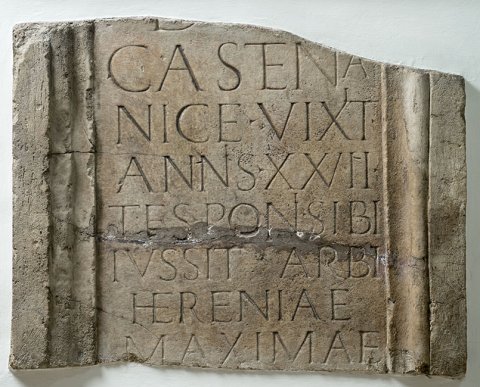 D
CASENA
NICE · VIXT
ANNS · XXVII ·
TESPONSIBI
IVSSIT ARBI
HERENIAE
MAXIMAE